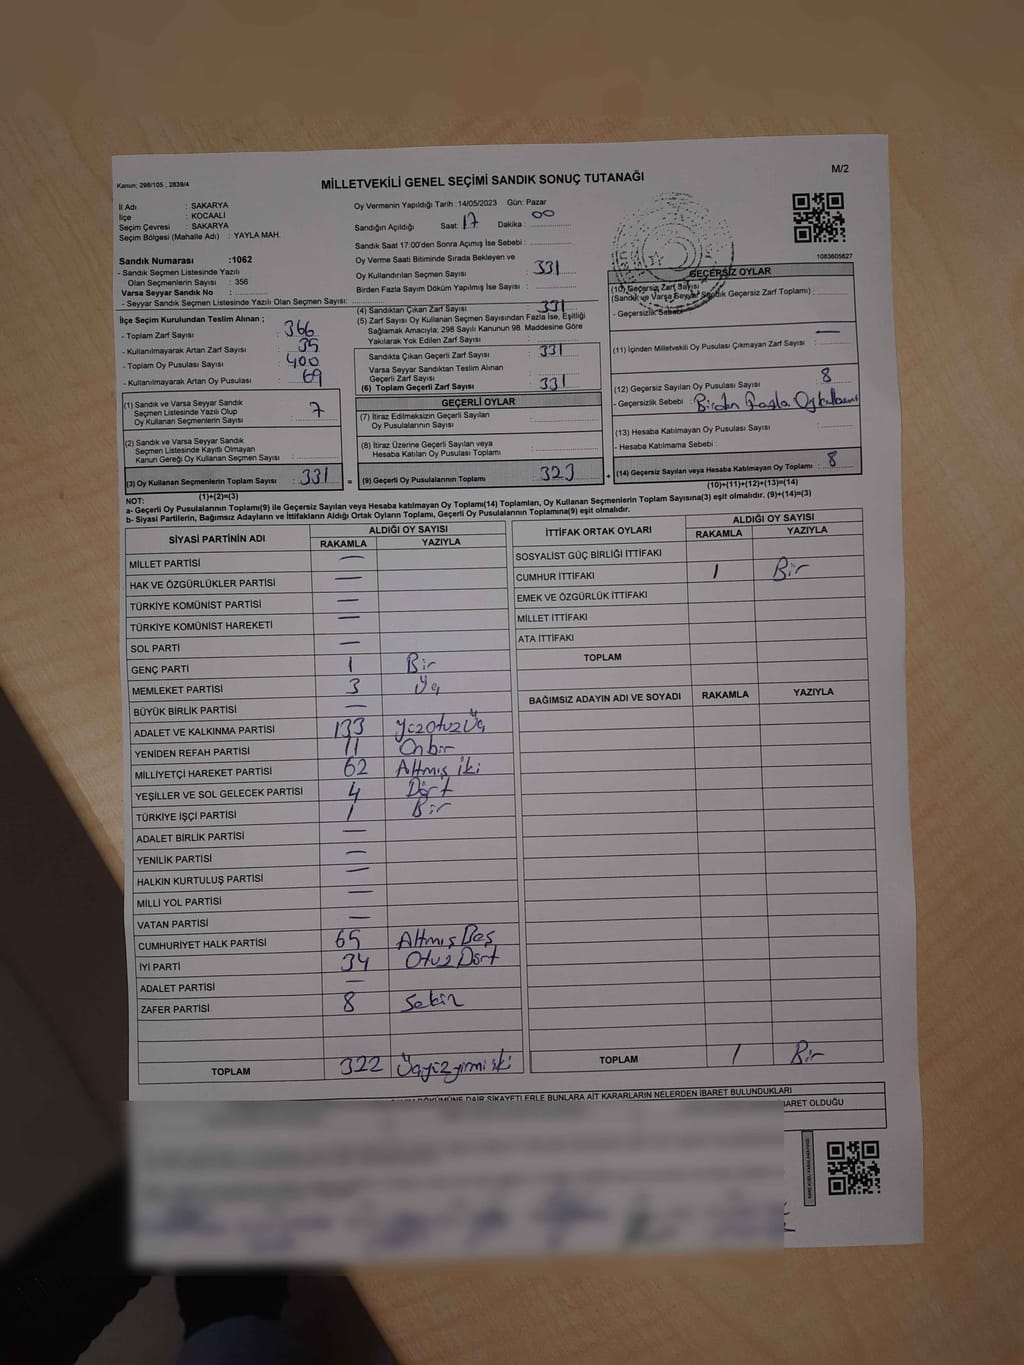 Kanun; 298/105 , 2839/4
MİLLETVEKİLİ GENEL SEÇİMİ SANDIK SONUÇ TUTANAĞI
M/2
İl Adı : SAKARYA
İlçe : KOCAALİ
Seçim Çevresi : SAKARYA
Seçim Bölgesi (Mahalle Adı) : YAYLA MAH.
Sandık Numarası :1062
- Sandık Seçmen Listesinde Yazılı
Olan Seçmenlerin Sayısı : 356
Varsa Seyyar Sandık No :
- Seyyar Sandık Seçmen Listesinde Yazılı Olan Seçmen Sayısı:
Oy Vermenin Yapıldığı Tarih :14/05/2023 Gün: Pazar
Sandığın Açıldığı Saat: 17 Dakika : 00
Sandık Saat 17:00'den Sonra Açımış İse Sebebi :
Oy Verme Saati Bitiminde Sırada Bekleyen ve
Oy Kullandırılan Seçmen Sayısı : 331
Birden Fazla Sayım Döküm Yapılmış İse Sayısı :
1083605827
İlçe Seçim Kurulundan Teslim Alınan ;
- Toplam Zarf Sayısı : 366
- Kullanılmayarak Artan Zarf Sayısı : 35
- Toplam Oy Pusulası Sayısı : 400
- Kullanılmayarak Artan Oy Pusulası : 69
(1) Sandık ve Varsa Seyyar Sandık
Seçmen Listesinde Yazılı Olup
Oy Kullanan Seçmenlerin Sayısı : 7
(2) Sandık ve Varsa Seyyar Sandık
Seçmen Listesinde Kayıtlı Olmayan
Kanun Gereği Oy Kullanan Seçmen Sayısı :
(3) Oy Kullanan Seçmenlerin Toplam Sayısı : 331
(1)+(2)=(3)
(4) Sandıktan Çıkan Zarf Sayısı : 331
(5) Zarf Sayısı Oy Kullanan Seçmen Sayısından Fazla İse, Eşitliği
Sağlamak Amacıyla; 298 Sayılı Kanunun 98. Maddesine Göre
Yakılarak Yok Edilen Zarf Sayısı :
Sandıkta Çıkan Geçerli Zarf Sayısı : 331
Varsa Seyyar Sandıktan Teslim Alınan
Geçerli Zarf Sayısı :
(6) Toplam Geçerli Zarf Sayısı : 331
GEÇERLİ OYLAR
(7) İtiraz Edilmeksizin Geçerli Sayılan
Oy Pusulalarının Sayısı :
(8) İtiraz Üzerine Geçerli Sayılan veya
Hesaba Katılan Oy Pusulası Toplamı :
= (9) Geçerli Oy Pusulalarının Toplamı : 323 +
GEÇERSİZ OYLAR
(10) Geçersiz Zarf Sayısı
(Sandık ve Varsa Seyyar Sandık Geçersiz Zarf Toplamı) :
- Geçersizlik Sebebi
(11) İçinden Milletvekili Oy Pusulası Çıkmayan Zarf Sayısı : —
(12) Geçersiz Sayılan Oy Pusulası Sayısı : 8
- Geçersizlik Sebebi : Birden Fazla Oy kullanımı
(13) Hesaba Katılmayan Oy Pusulası Sayısı :
- Hesaba Katılmama Sebebi :
(14) Geçersiz Sayılan veya Hesaba Katılmayan Oy Toplamı : 8
(10)+(11)+(12)+(13)=(14)
NOT:
a- Geçerli Oy Pusulalarının Toplamı(9) ile Geçersiz Sayılan veya Hesaba katılmayan Oy Toplamı(14) Toplamları, Oy Kullanan Seçmenlerin Toplam Sayısına(3) eşit olmalıdır. (9)+(14)=(3)
b- Siyasi Partilerin, Bağımsız Adayların ve İttifakların Aldığı Ortak Oyların Toplamı, Geçerli Oy Pusulalarının Toplamına(9) eşit olmalıdır.
SİYASİ PARTİNİN ADI ALDIĞI OY SAYISI
RAKAMLA YAZIYLA
MİLLET PARTİSİ —
HAK VE ÖZGÜRLÜKLER PARTİSİ —
TÜRKİYE KOMÜNİST PARTİSİ —
TÜRKİYE KOMÜNİST HAREKETİ —
SOL PARTİ —
GENÇ PARTİ 1 Bir
MEMLEKET PARTİSİ 3 Üç
BÜYÜK BİRLİK PARTİSİ —
ADALET VE KALKINMA PARTİSİ 133 YüzOtuzÜç
YENİDEN REFAH PARTİSİ 11 Onbir
MİLLİYETÇİ HAREKET PARTİSİ 62 Altmış iki
YEŞİLLER VE SOL GELECEK PARTİSİ 4 Dört
TÜRKİYE İŞÇİ PARTİSİ 1 Bir
ADALET BİRLİK PARTİSİ —
YENİLİK PARTİSİ —
HALKIN KURTULUŞ PARTİSİ —
MİLLİ YOL PARTİSİ —
VATAN PARTİSİ —
CUMHURİYET HALK PARTİSİ 65 Altmış Beş
İYİ PARTİ 34 Otuz Dört
ADALET PARTİSİ —
ZAFER PARTİSİ 8 Sekiz
TOPLAM 322 Üçyüzyirmi iki
İTTİFAK ORTAK OYLARI ALDIĞI OY SAYISI
RAKAMLA YAZIYLA
SOSYALİST GÜÇ BİRLİĞİ İTTİFAKI
CUMHUR İTTİFAKI 1 Bir
EMEK VE ÖZGÜRLÜK İTTİFAKI
MİLLET İTTİFAKI
ATA İTTİFAKI
TOPLAM
BAĞIMSIZ ADAYIN ADI VE SOYADI RAKAMLA YAZIYLA
TOPLAM 1 Bir
DÖKÜMÜNE DAİR ŞİKAYETLERLE BUNLARA AİT KARARLARIN NELERDEN İBARET BULUNDUKLARI
İBARET OLDUĞU